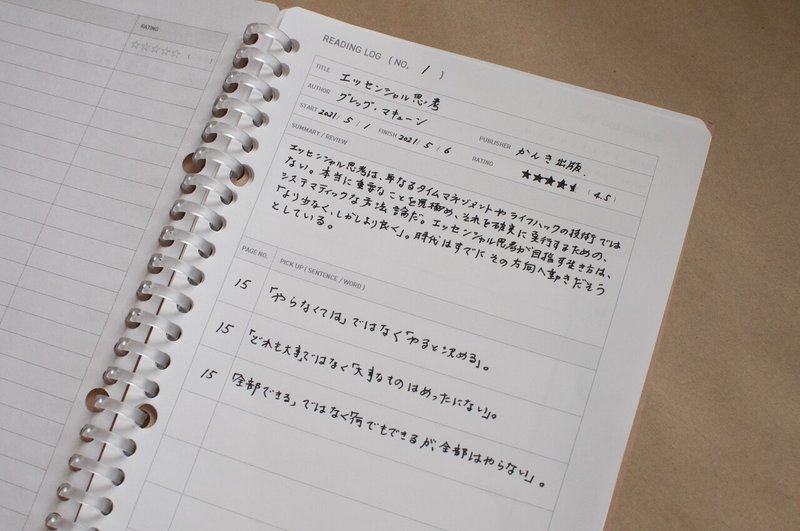 RATING
☆☆☆☆☆ ( )
READING LOG ( NO. 1 )
TITLE エッセンシャル思考
AUTHOR グレッグ・マキューン PUBLISHER かんき出版.
START 2021 / 5 / 1 FINISH 2021 / 5 / 6 RATING ★★★★⯨ ( 4.5 )
SUMMARY / REVIEW
エッセンシャル思考は、単なるタイムマネジメントやライフハックの技術では
ない。本当に重要なことを見極め、それを確実に実行するための、
システマティックな方法論だ。エッセンシャル思考が目指す生き方は、
「より少なく、しかしより良く」。時代はすでにその方向へ動きだそう
としている。
PAGE NO. PICK UP ( SENTENCE / WORD )
15 「やらなくては」ではなく「やると決める」。
15 「どれも大事」ではなく「大事なものはめったにない」。
15 「全部できる」ではなく「何でもできるが、全部はやらない」。